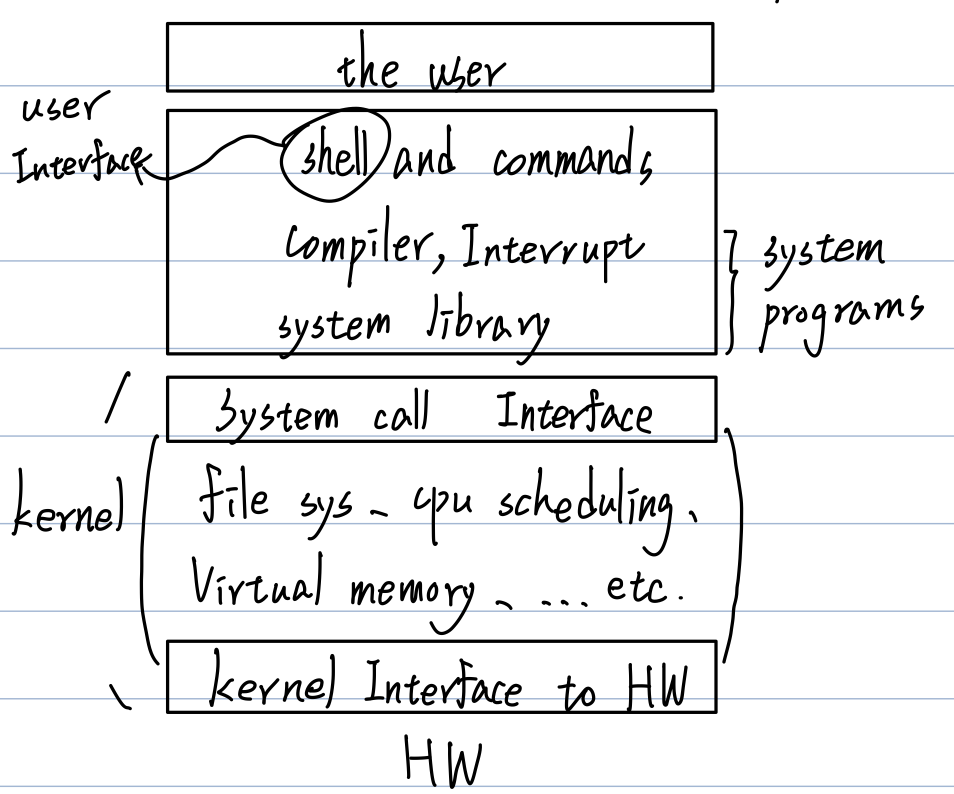 the user
user
Interface
shell and commands,
Compiler, Interrupt
system library
system
programs
System call Interface
kernel
file sys、cpu scheduling、
Virtual memory、... etc.
kernel Interface to HW
HW